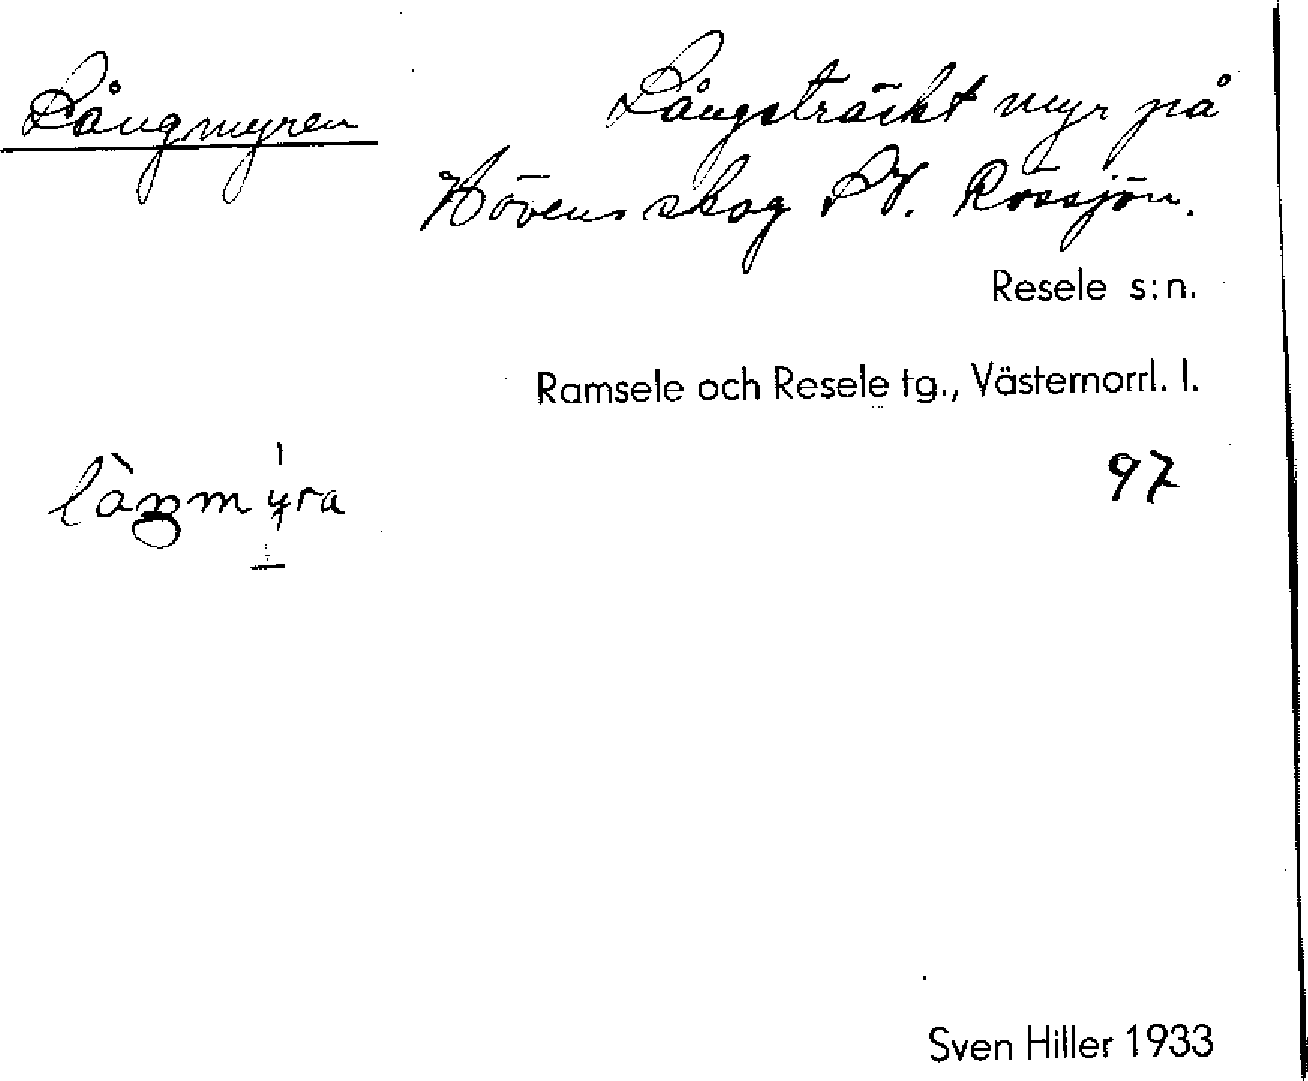 Långmyren
Långsträckt myr på
Hövens skog SV. Rössjön.
Resele s:n.
Ramsele och Resele tg., Västernorrl. l.
97
Sven Hiller 1933